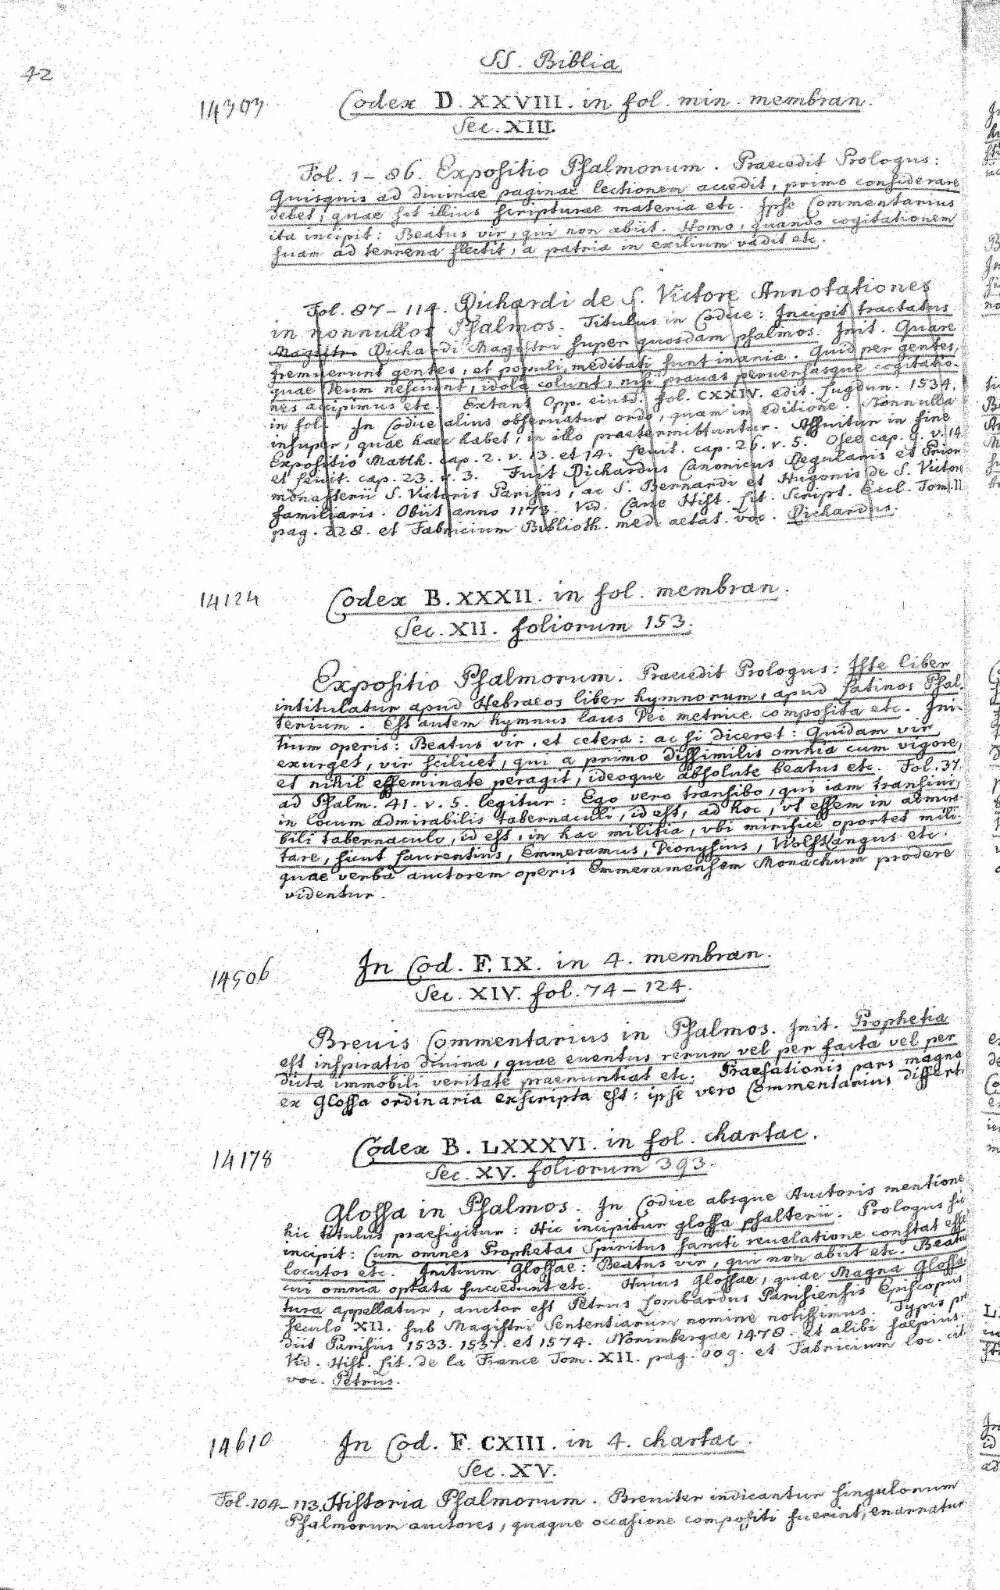 42
SS. Biblia
14303
Codex D. XXVIII. in fol. min. membran.
Sec. XIII.
Fol. 1–86. Expositio Psalmorum. Praecedit Prologus:
Quisquis ad divinae paginae lectionem accedit, primo considerare
debet, quae sit illius scripturae materia etc. Ipse Commentarius
ita incipit: Beatus vir, qui non abiit. Homo, quando cogitationem
suam ad terrena flectit, a patria in exilium vadit etc.
Fol. 87–114. Richardi de S. Victore Annotationes
in nonnullos Psalmos. Titulus in Codice: Incipit tractatus
Magistri Richardi Magistri super quosdam psalmos. Init. Quare
fremuerunt gentes, et populi meditati sunt inania. Quid per gentes,
quae Deum nesciunt, idola colunt, nisi pravas perversasque cogitatio-
nes accipimus etc. Extant Opp. eiusd. fol. CXXIV. edit. Lugdun. 1534.
in fol. In Codice alius observatur ordo, quam in editione. Nonnulla
insuper, quae haec habet, in illo praetermittuntur. Affuitur in fine
Expositio Matth. cap. 2. v. 13. et 14. seuit. cap. 26. v. 5. Osee cap. v. 14
et seuit. cap. 23. v. 3. Fuit Richardus Canonicus Regularis et Prior
monasterii S. Victoris Parisiis, ac S. Bernardi et Hugonis de S. Victore
familiaris. Obiit anno 1173. Vid. Cave Hist. Lit. Script. Eccl. Tom. II
pag. 228. et Fabricium Biblioth. med. aetat. voc. Richardus.
14124
Codex B. XXXII. in fol. membran.
Sec. XII. foliorum 153.
Expositio Psalmorum. Praecedit Prologus: Iste liber
intitulatur apud Hebraeos liber hymnorum, apud Latinos Psal-
terium. Est autem hymnus laus Dei metrice composita etc. Ini-
tium operis: Beatus vir, et cetera: ac si diceret: Quidam vir
exurget, vir scilicet, qui a primo dissimilis omnia cum vigore,
et nihil effeminate peragit, ideoque absolute beatus etc. Fol. 37.
ad Psalm. 41. v. 5. legitur: Ego vero transibo, qui iam transivi,
in locum admirabilis tabernaculi, id est, ad hoc, vt essem in admira-
bili tabernaculo, id est, in hac militia, vbi mirifice oportet mili-
tare, sicut Laurentius, Emmeramus, Dionysius, Wolfkangus etc.
quae verba auctorem operis Emmeramensem Monachum prodere
videntur.
14506
In Cod. F. IX. in 4. membran.
Sec. XIV. fol. 74–124.
Brevis Commentarius in Psalmos. Init. Prophetia
est inspiratio divina, quae eventus rerum vel per facta vel per
dicta immobili veritate praenuntiat etc. Praefationis pars magna
ex Glossa ordinaria exscripta est: ipse vero Commentarius differt.
14178
Codex B. LXXXVI. in fol. chartac.
Sec. XV. foliorum 393.
Glossa in Psalmos. In Codice absque Auctoris mentione
hic titulus praefigitur: Hic incipitur glossa psalterii. Prologus sic
incipit: Cum omnes Prophetas Spiritus sancti revelatione constat esse
locutos etc. Initium Glossae: Beatus vir, qui non abiit etc. Beatus
cui omnia optata succedunt etc. Huius Glossae, quae Magna Glossa
tura appellatur, auctor est Petrus Lombardus Parisiensis Episcopus
seculo XII. sub Magistri Sententiarum nomine notissimus. Typis pro
diit Parisiis 1533. 1537. et 1574. Norimbergae 1478. et alibi saepius.
Vid. Hist. Lit. de la France Tom. XII. pag. 609. et Fabricium loc. cit.
voc. Petrus.
14610
In Cod. F. CXIII. in 4. chartac.
Sec. XV.
Fol. 104–113. Historia Psalmorum. Breviter indicantur singulorum
Psalmorum auctores, quaque occasione compositi fuerint, enarratur